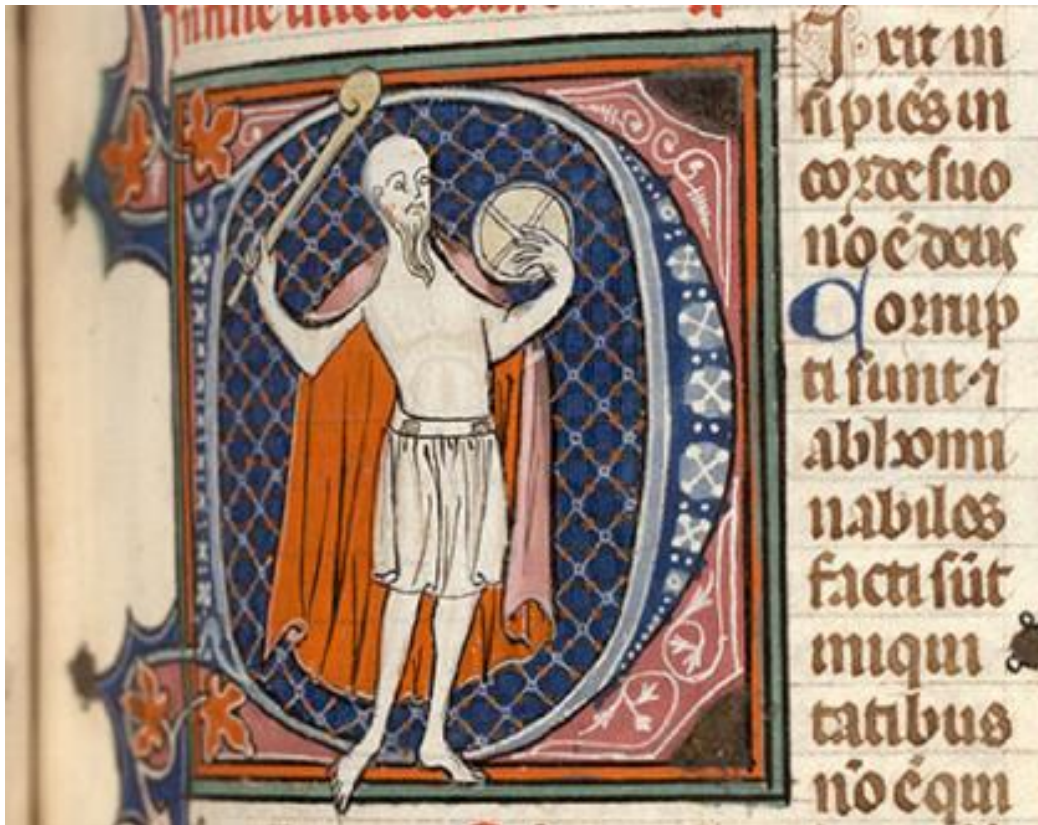 In fine
DIxit in
sipiēs in
corde suo
nō ē deus
Corrup
ti sunt ⁊
abhomi
nabiles
facti sūt
iniqui
tatibus
nō ē qui